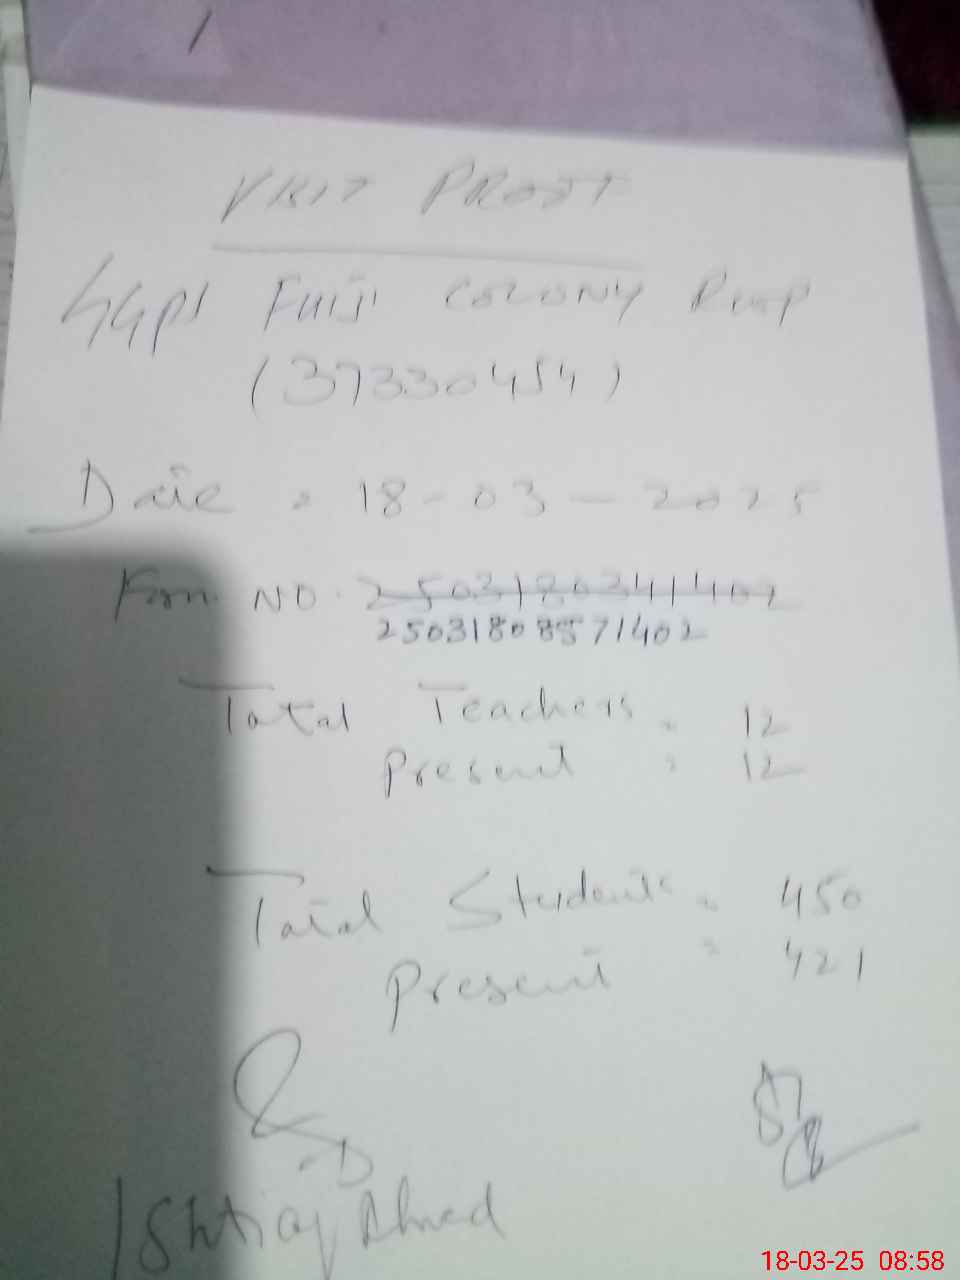 VISIT PROOF
GGPS FUIJI COLONY RWP
(37330454)
Date = 18-03-2025
Form NO. 25031803411402
25031808571402
Total Teachers = 12
Present = 12
Total Students = 450
Present = 421
Ishtiaq Ahmed
18-03-25 08:58